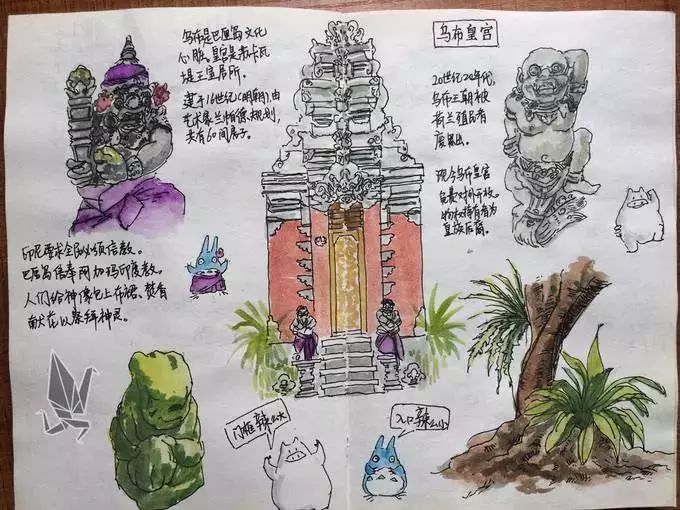 乌布是巴厘岛文化
心脏。皇宫是苏卡瓦
堤王室居所。
建于16世纪(明朝),由
艺术家兰帕德规划,
共有60间房子。
乌布皇宫
20世纪20年代,
乌布王朝被
荷兰殖民者
废黜出
现今乌布皇宫
免费对外开放,
物权持有者为
皇族后裔。
印尼要求全民必须信教。
巴厘岛信奉阿加玛印度教。
人们给神像包上布裙、焚香
献花以祭拜神灵。
门雕辣么大
入口辣么小